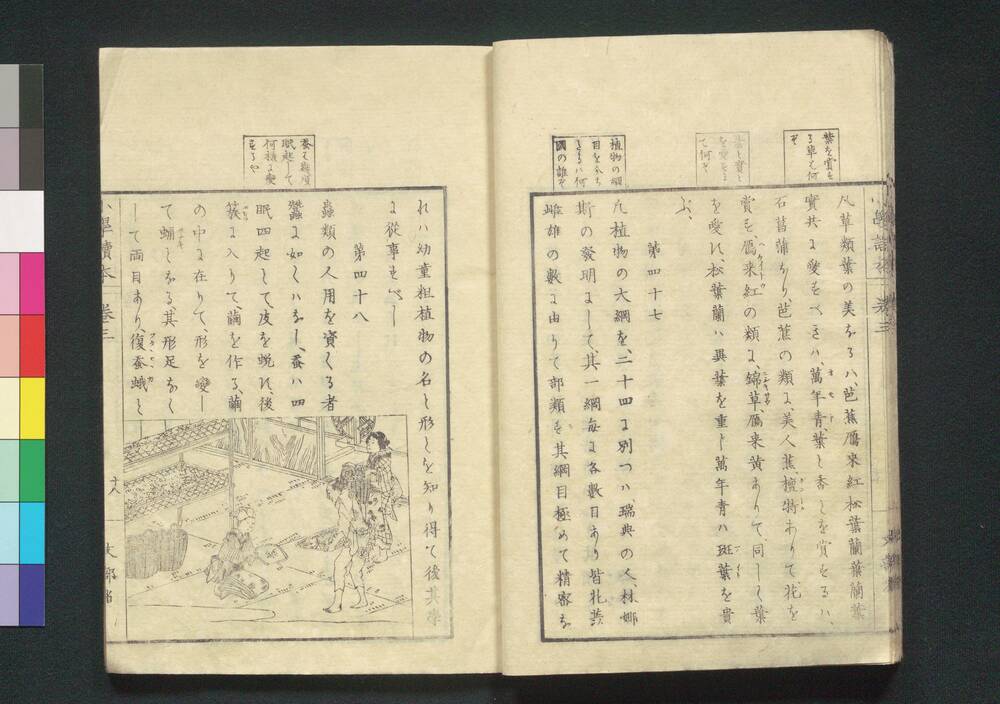 葉を賞す
る草ハ何
ぞ
葉と實と
を愛する
ハ何ぞ
植物の綱
目を分ち
たるハ何
國の誰ぞ
凡草類葉の美なるハ、芭蕉雁来紅松葉蘭葉蘭葉
實共に愛すべきハ、萬年青、葉と香とを賞するハ、
石菖蒲なり、芭蕉の類に、美人蕉、檀特ありて、花を
賞す、雁来紅の類に、錦草、雁来黄ありて、同しく葉
を愛す、松葉蘭ハ異葉を重し萬年青ハ斑葉を貴
ぶ、
第四十七
凡植物の大綱を、二十四に別つハ、瑞典の人、林娜
斯の發明にして、其一綱毎に各數目あり皆牝蕋
雌雄の數に由りて部類を其綱目極めて精密な
蚕ハ幾度
眠起して
何様に變
するや
れハ幼童粗植物の名と形とを知り得て後其学
に從事すべし
第四十八
蟲類の人用を資くる者
蠶に如くハなし、蚕ハ四
眠四起して、皮を蛻ぎ、後
簇に入りて、繭を作る、繭
の中に在りて、形を變し
て蛹となる、其形足なく
して両目あり、復蚕蛾と
小學讀本 巻三
十八
文部省